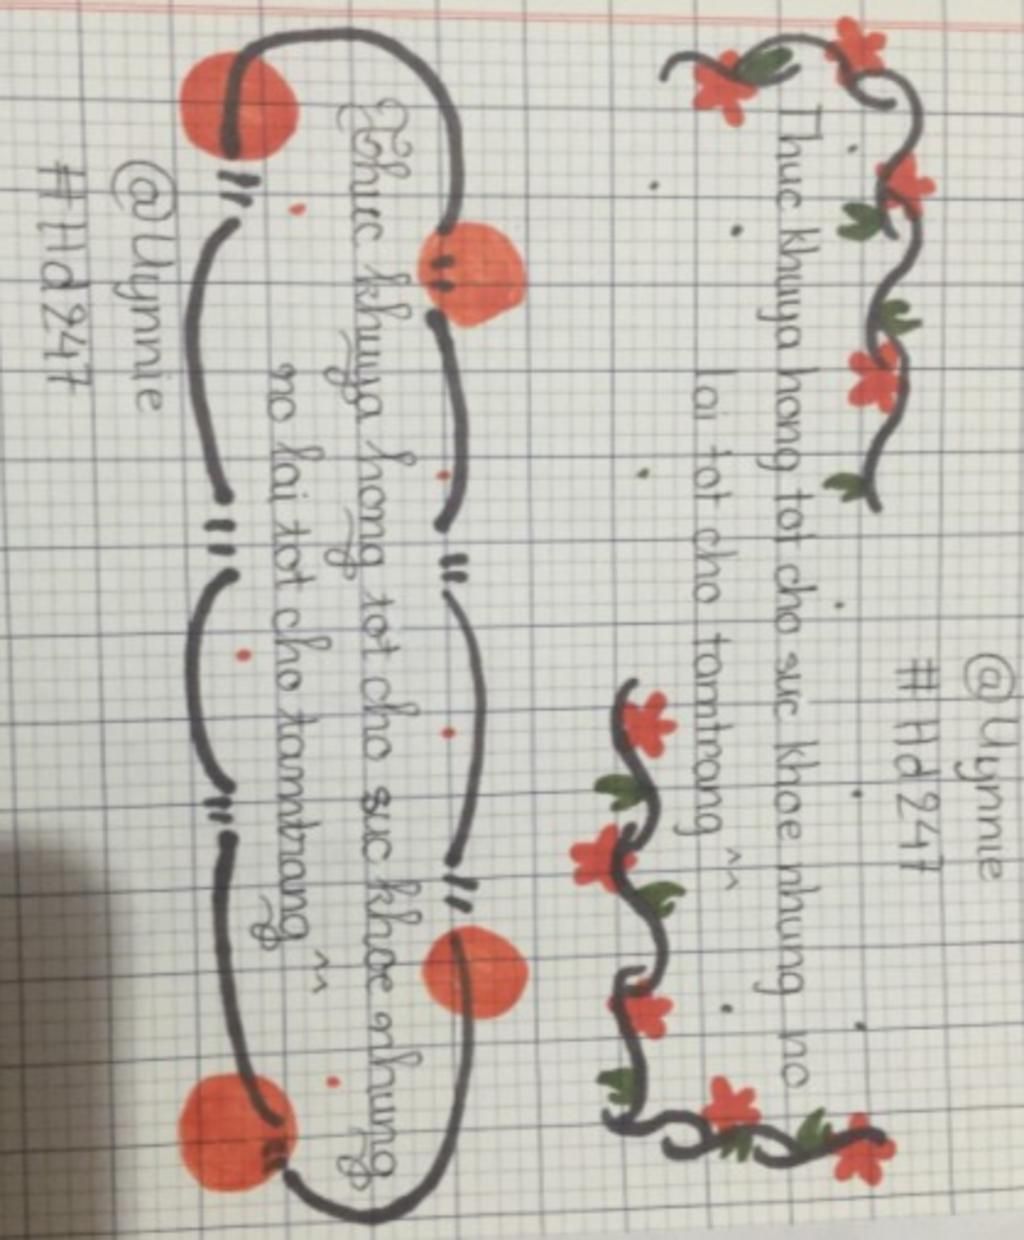 @Uynnie
# Hd247
Thuc khuya hong tot cho suc khoe nhung no
lai tot cho tamtrang ^^
Thuc khuya hong tot cho suc khoe nhung
no lai tot cho tamtrang ^^
@Uynnie
#Hd247